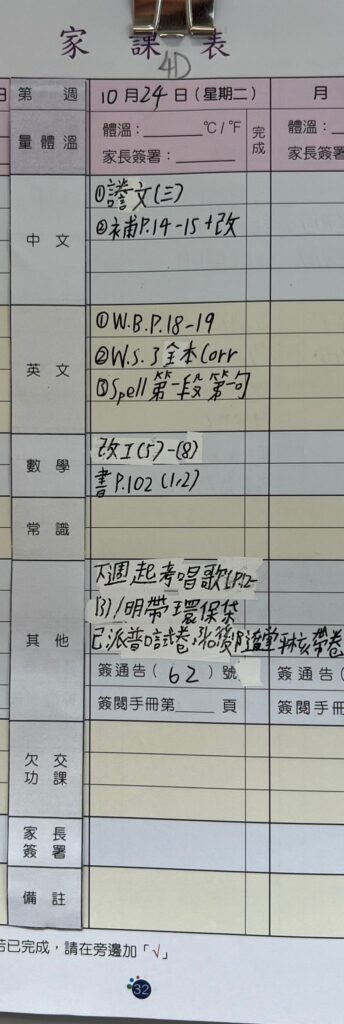 家課表
4D
第 週
10月24日(星期二)
月
量體溫
體溫：______°C/°F
家長簽署：______
完成
體溫：
家長簽署
中文
①謄文(三)
②補P.14-15+改
英文
①W.B.P.18-19
②W.S.3全本Corr
③Spell第一段第一句
數學
改工(5)-(8)
書P.102(1,2)
常識
其他
下週起考唱歌(P.12-
13)/明帶環保袋
已派普口試卷,
帶卷
簽通告(62)號
簽通告(
簽閱手冊第____頁
簽閱手冊
欠交功課
家長簽署
備註
若已完成，請在旁邊加「√」
32